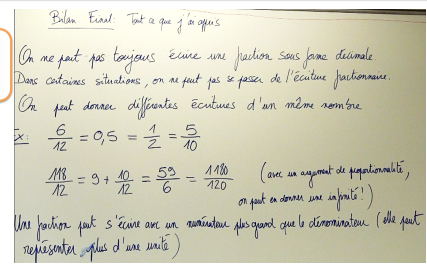 Bilan Final: Tout ce que j'ai appris
On ne peut pas toujours écrire une fraction sous forme décimale.
Dans certaines situations, on ne peut pas se passer de l'écriture fractionnaire.
On peut donner différentes écritures d'un même nombre
Ex: 6/12 = 0,5 = 1/2 = 5/10
118/12 = 9 + 10/12 = 59/6 = 1180/120 (avec un argument de proportionnalité,
on peut en donner une infinité!)
Une fraction peut s'écrire avec un numérateur plus grand que le dénominateur (elle peut
représenter plus d'une unité)